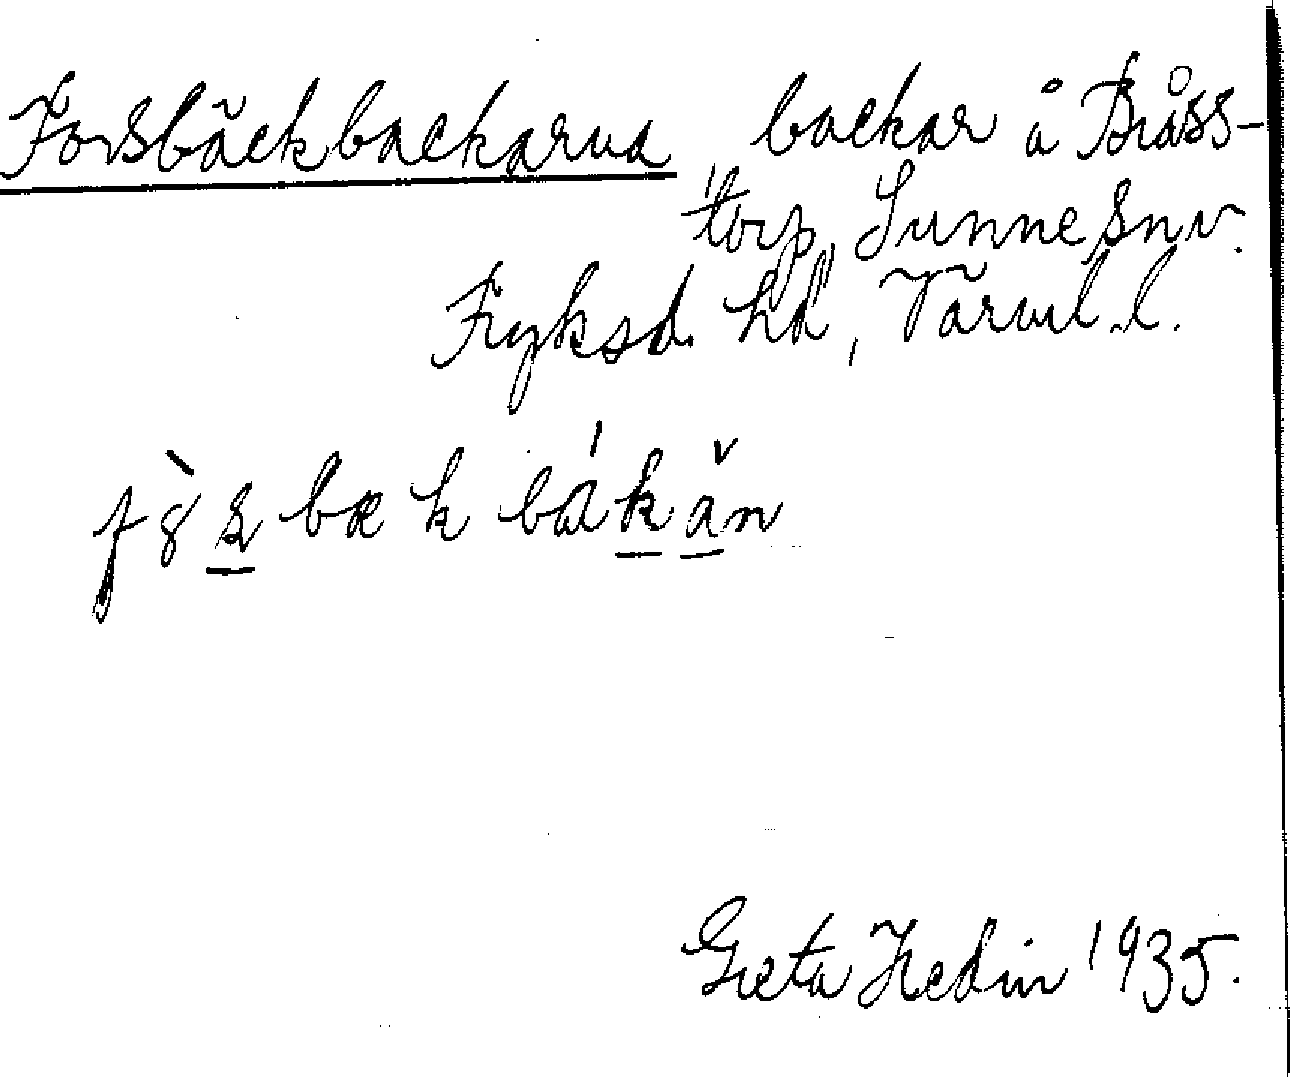 Forsbäckbackarna backar å Bråss-
torp, Sunne snv.
Fryksd. hd, Värml. l.
Greta Hedin 1935.